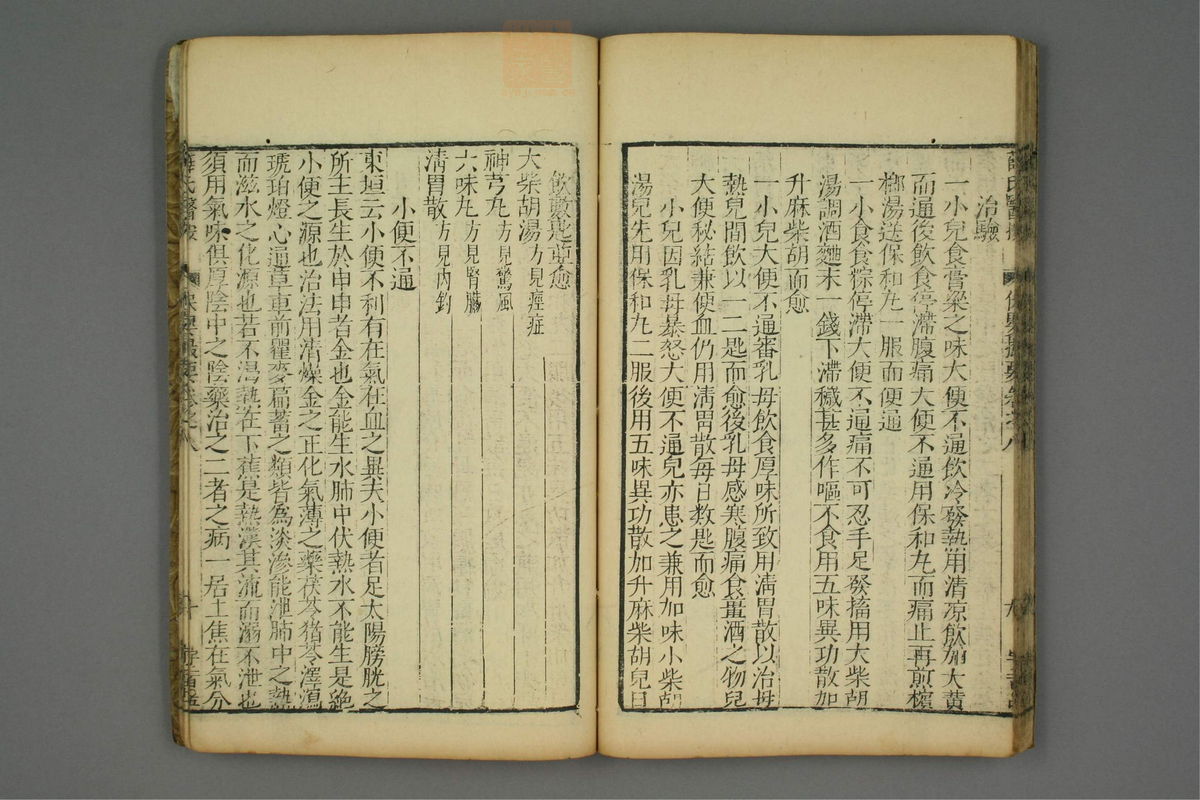 治驗
一小兒食膏粱之味大便不通飲冷發熱用清凉飲加大黃
而通後飲食停滯腹痛大便不通用保和丸而痛止再煎檳
榔湯送保和丸一服而便通
一小食食粽停滯大便不通痛不可忍手足發搐用大柴胡
湯調酒麯末一錢下滯穢甚多作嘔不食用五味異功散加
升麻柴胡而愈
一小兒大便不通審乳母飲食厚味所致用清胃散以治母
熱兒間飲以一二匙而愈後乳母感寒腹痛食薑酒之物兒
大便秘結兼便血仍用清胃散每日数匙而愈
一小兒因乳母暴怒大便不通兒亦患之兼用加味小柴胡
湯兒先用保和丸二服後用五味異功散加升麻柴胡兒日
飲數匙並愈
大柴胡湯方見痙症
神芎丸方見驚風
六味丸方見腎臟
清胃散方見內釣
小便不通
東垣云小便不利有在氣在血之異夫小便者足太陽膀胱之
所主長生於申申者金也金能生水肺中伏熱水不能生是絕
小便之源也治法用清燥金之正化氣薄之藥茯苓猪苓澤瀉
琥珀燈心通草車前瞿麥扁蓄之類皆為淡滲能泄肺中之熱
而滋水之化源也若不渴熱在下蕉是熱澀其流而溺不泄也
須用氣味俱厚陰中之陰藥治之二者之病一居上焦在氣分
薛氏醫